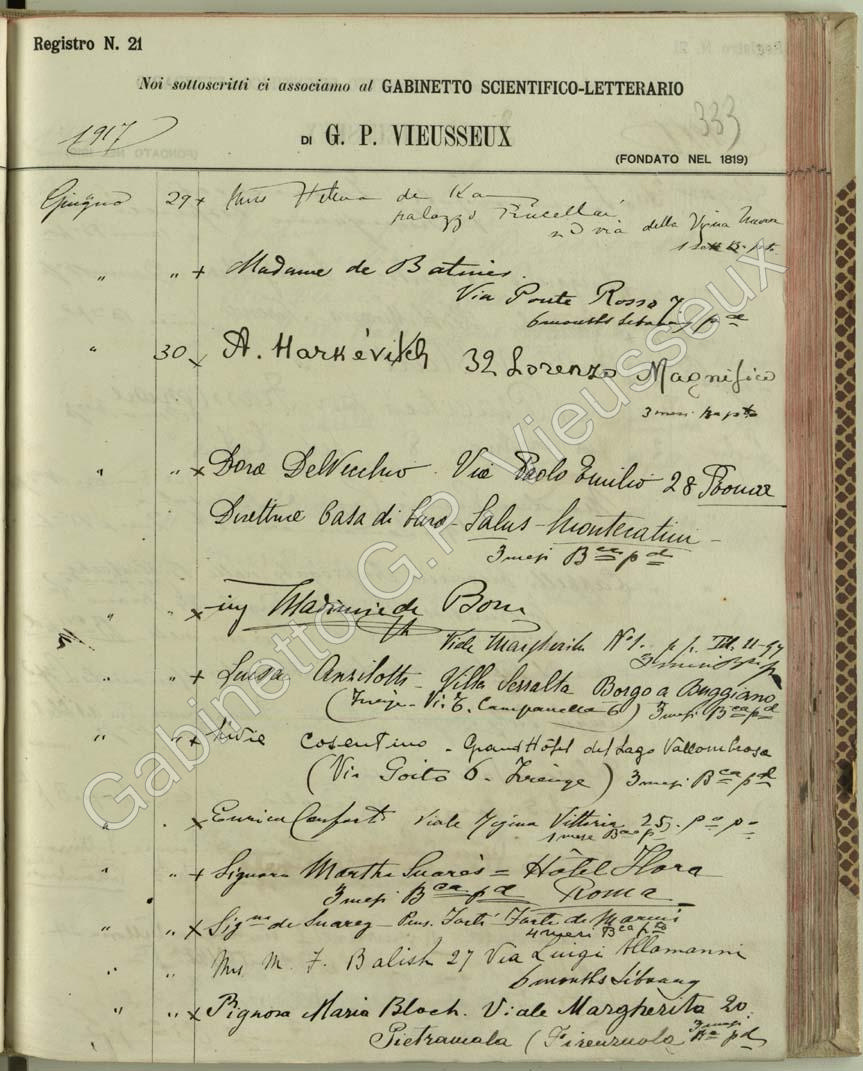 Registro N. 21
Noi sottoscritti ci associamo al GABINETTO SCIENTIFICO-LETTERARIO
333
1917
DI G. P. VIEUSSEUX
(FONDATO NEL 1819)
Giugno 29 x Miss de
palazzo Rucellai
via della Vigna Nuova
" " + Madame de Batines.
Via Ponte Rosso 7
6 months Library pd
" 30 x A. Harkévitch 32 Lorenzo Magnifico
3 mesi
" " x Dora DelVecchio. Via Paolo Emilio 28 Roma
Direttrice Casa di Cura - Salus - Montecatini -
3 mesi Bca pd
" " x ing
Viale Margherita No 1.
" " + Luisa Anzilotti - Villa Serralta Borgo a Buggiano
(Firenze - Via T. Campanella 6) 3 mesi Bca pd
" " x Livia Cosentino - Grand Hôtel del Lago Vallombrosa
(Via Goito 6 - Firenze) 3 mesi Bca pd
" " x Enrica Conforti Viale Regina Vittoria 25. po po
1 mese Bca p
" " + Signora Martha Suarès = Hôtel Flora
3 mesi Bca pd Roma
" " x Sigra de Suarez - Pens. Forti Forte dei Marmi
4 mesi Bca pd
" " Mrs M. F. Balish 27 Via Luigi Allamanni
6 months Library
" " x Signora Maria Bloch. Viale Margherita 20.
Pietramala (Firenzuola) 3 mesi Bca pd
Gabinetto G.P. Vieusseux